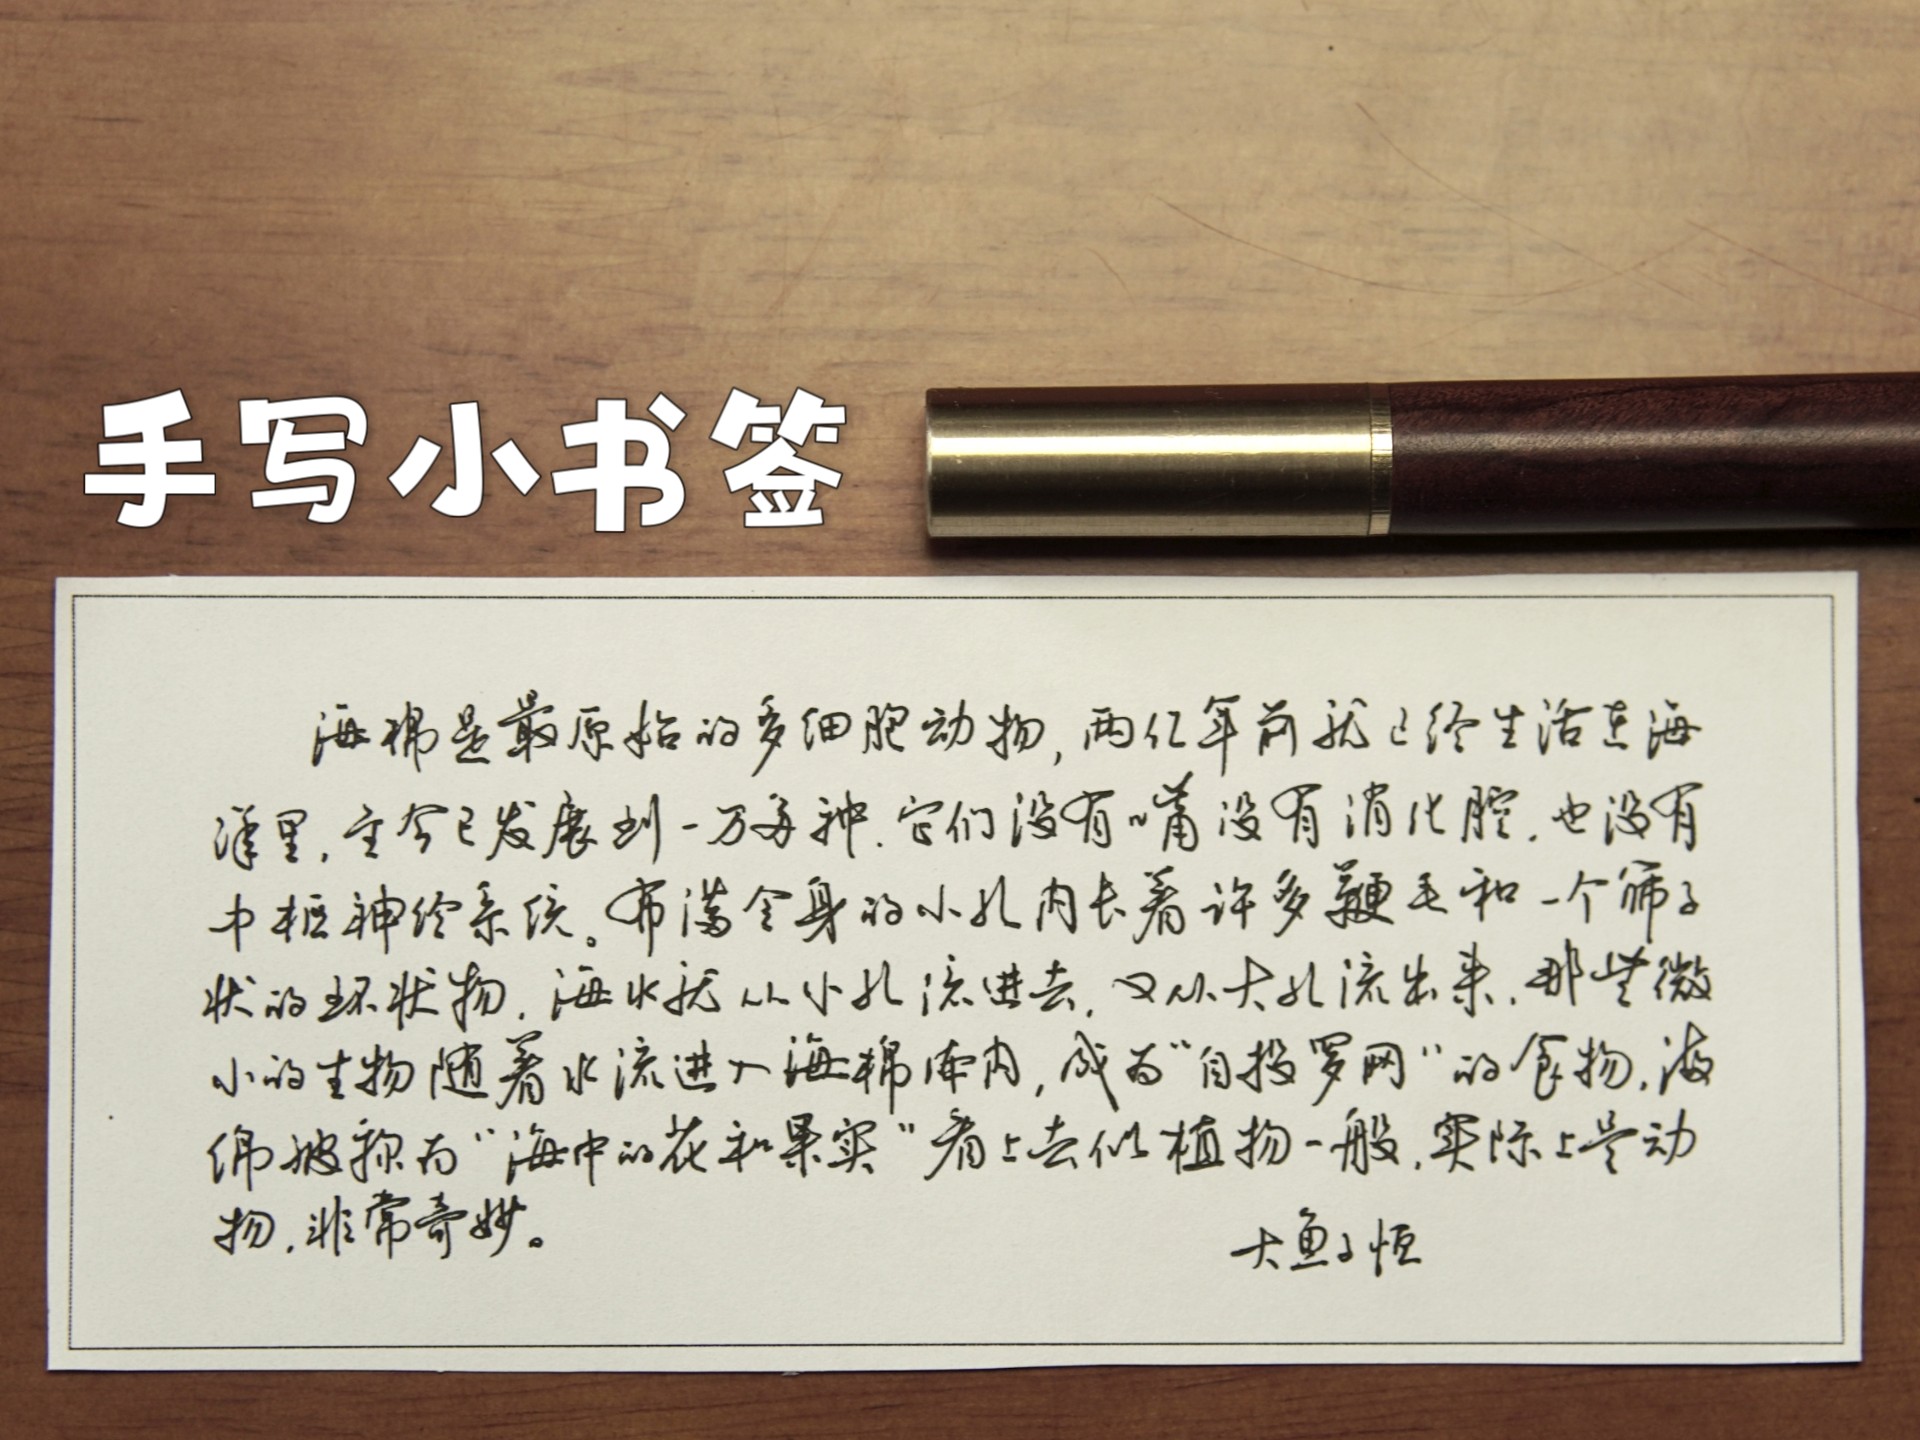 手写小书签
海棉是最原始的多细胞动物,两亿年前就已经生活在海
洋里,至今已发展到一万多种.它们没有嘴没有消化腔.也没有
中枢神经系统。布满全身的小孔内长着许多鞭毛和一个筛子
状的环状物.海水就从小孔流进去,又从大孔流出来.那些微
小的生物随着水流进入海棉体内,成为"自投罗网"的食物.海
绵被称为"海中的花和果实"看上去似植物一般.实际上是动
物.非常奇妙。
大鱼子恒